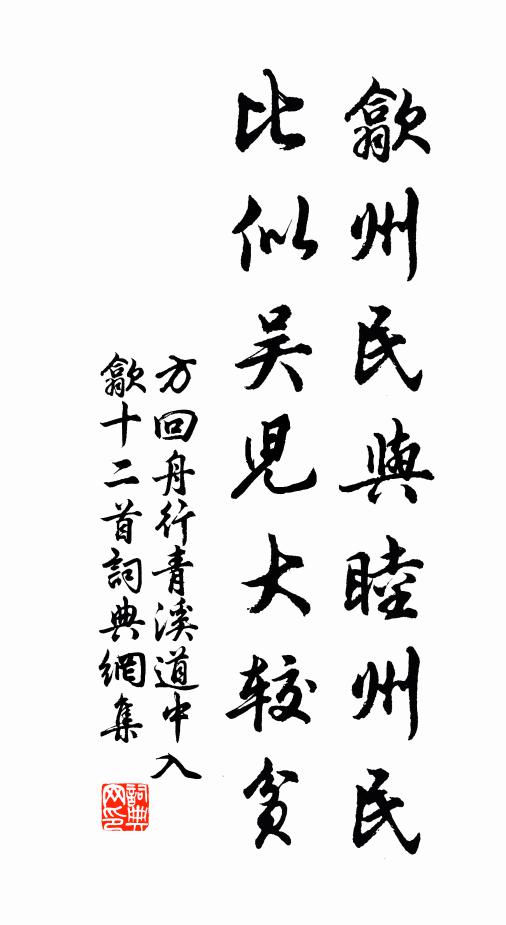 歙州民與睦州民
比似吴児大较貧
方回舟行青溪道中入
歙十二首詞典網集
詞典网印